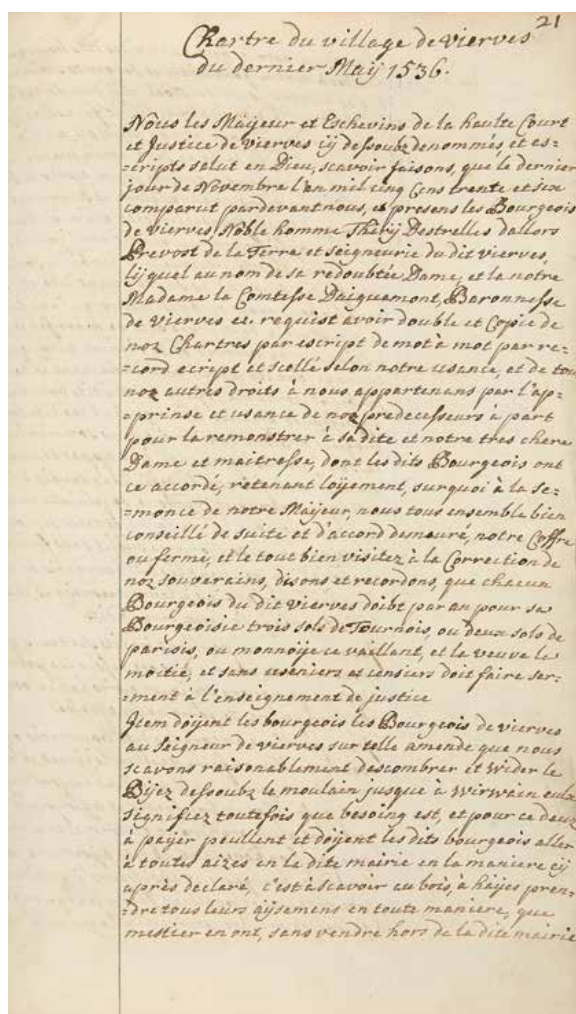 21
Chartre du village de vierves
du dernier Maÿ 1536.
Nous les Maÿeur et Eschevins de la haulte Court
et Justice de vierves cÿ dessoubz denommés, et es=
=cripts salut en Dieu, scavoir faisons, que le dernier
jour de Novembre l'an mil cinq Cens trente et six
comparut pardevant nous, et presens les Bourgeois
de vierves Noble homme Thirÿ Destrelles dallors
Prevost de la Terre et seigneurie du dit vierves,
lÿquel au nom de sa redoubtée Dame, et la notre
Madame la Comtesse Daiguemont, Baronnesse
de vierves et. requist avoir double et Copie de
noz Chartres par escript de mot à mot par re=
=cord ecript et scellé selon notre usance, et de tous
noz autres droits à nous appartenans par l'ap=
=prinse et usance de noz predecesseurs à part
pour la remonstrer à sa dite et notre tres chere
Dame et maitresse, dont les dits Bourgeois ont
ce accordé, retenant loÿement, surquoi à la se=
=monce de notre Maÿeur, nous tous ensemble bien
conseillé de suite et d'accord demeuré, notre Coffre
ou ferme, et le tout bien visitez à la Correction de
noz souverains, disons et recordons, que chacun
Bourgeois du dit vierves doibt par an pour sa
Bourgeoisie trois sols de Tournois, ou deux sols de
parisis, ou monnoÿe ce vaillant, et la veuve la
moitié, et sans et censiers doit faire ser=
=ment à l'enseignement de justice
Item doÿent les bourgeois les Bourgeois de vierves
au Seigneur de vierves sur telle amende que nous
scavons raisonablement descombrer et wider le
Bijez dessoubz le moulain jusque a Wirwain eulx
signifiez toutefois que besoing est, et pour ce deux
à paÿer peullent et doÿent les dits bourgeois aller
à toutes aizes en la dite mairie en la maniere cÿ
après declaré, c'est à scavoir au bois, à haÿes pren=
=dre tous leurs aÿsemens en toute maniere, que
mestier en ont, sans vendre hors de la dite mairie